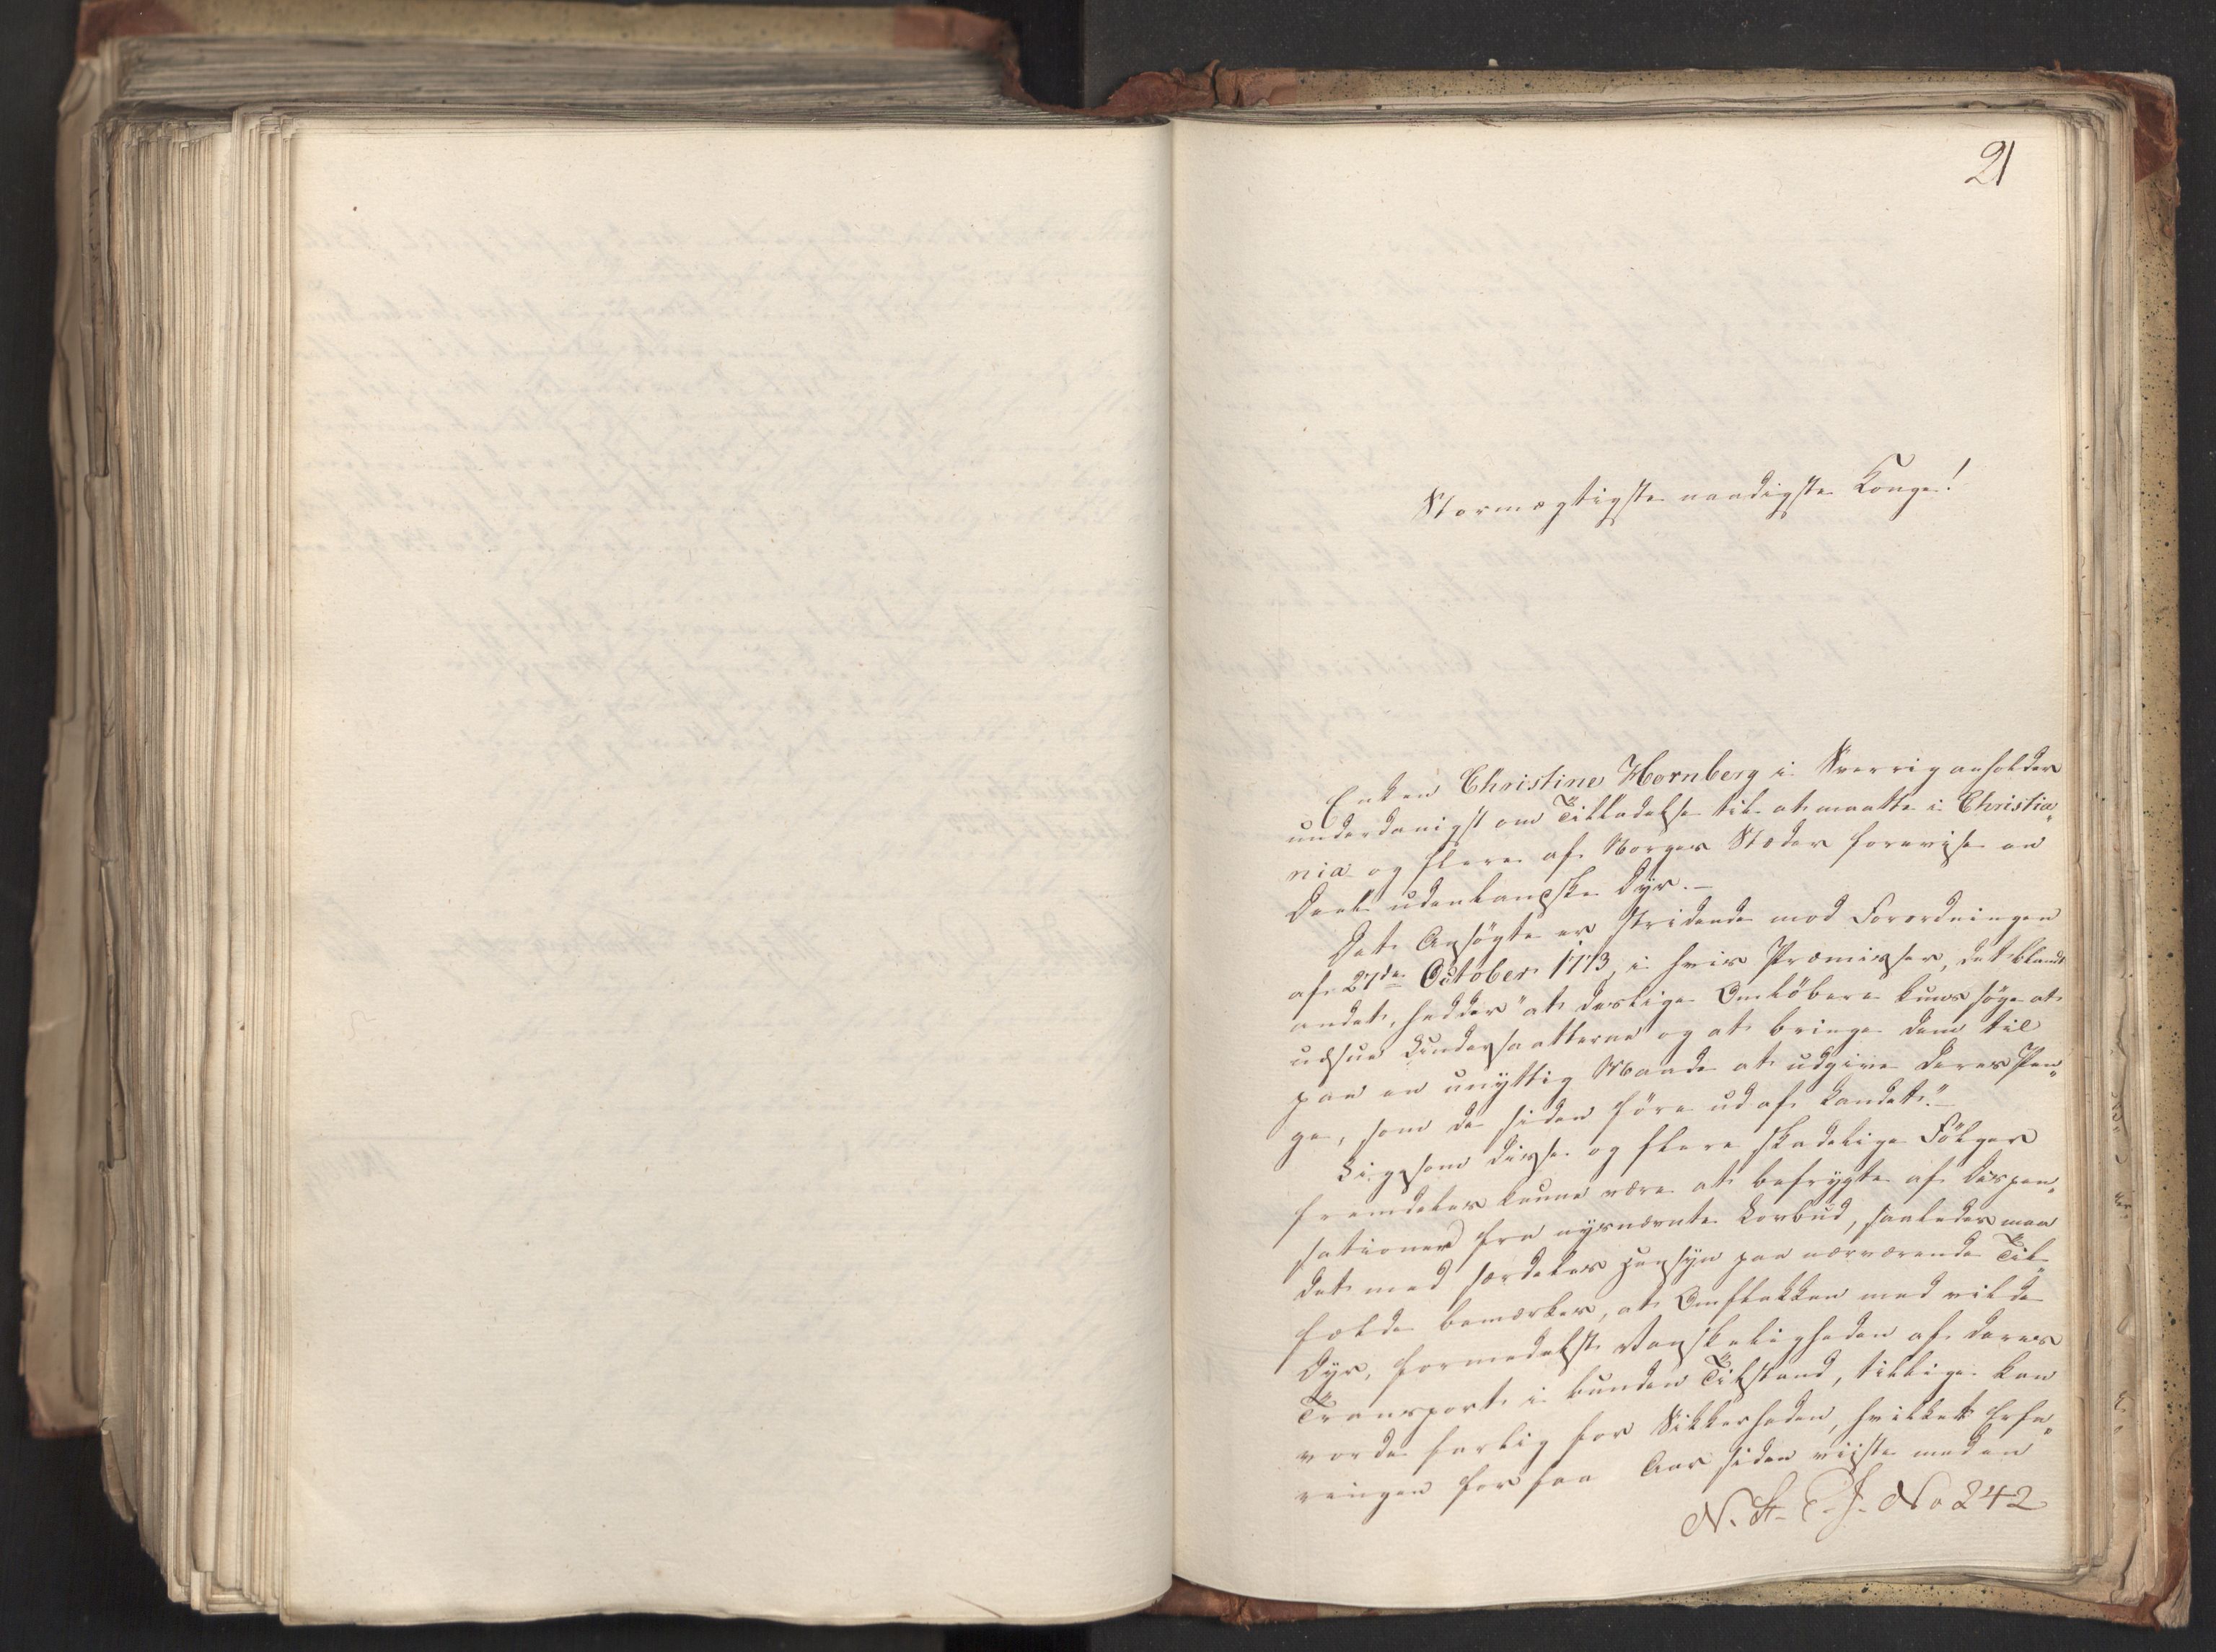 21
Stormægtigste naadigste Konge!
Enken Christine Hornberg i Sverrig anholder
underdanigst om Tilladelse til at maatte i Christia„
nia og flere af Norges Stæder forevise en
Deel udenlandske Dyr.—
Det Ansøgte er stridende mod Forordningen
af 27de October 1773, i hvis Præmisser, det blandt
andet, hedder "at deslige Omløbere kuns søge at
udsue Undersaatterne og at bringe dem til
paa en unyttig Maade at udgive deres Pen„
ge, som de siden føre ud af Landet."—
Ligesom disse og flere skadelige Følger
fremdeles kunne være at befrygte af Dispen„
sationer fra nysnævnte Lovbud, saaledes maa
det med særdeles Hensyn paa nærværende Til„
fælde bemærkes, at Omflakken med vilde
Dyr, formedelst Vanskeligheden af deres
Transport i bunden Tilstand, tillige kan
vorde farlig for Sikkerheden, hvilket Erfa„
ringen for faa Aar siden viiste med en
N. St. E. J. No 242